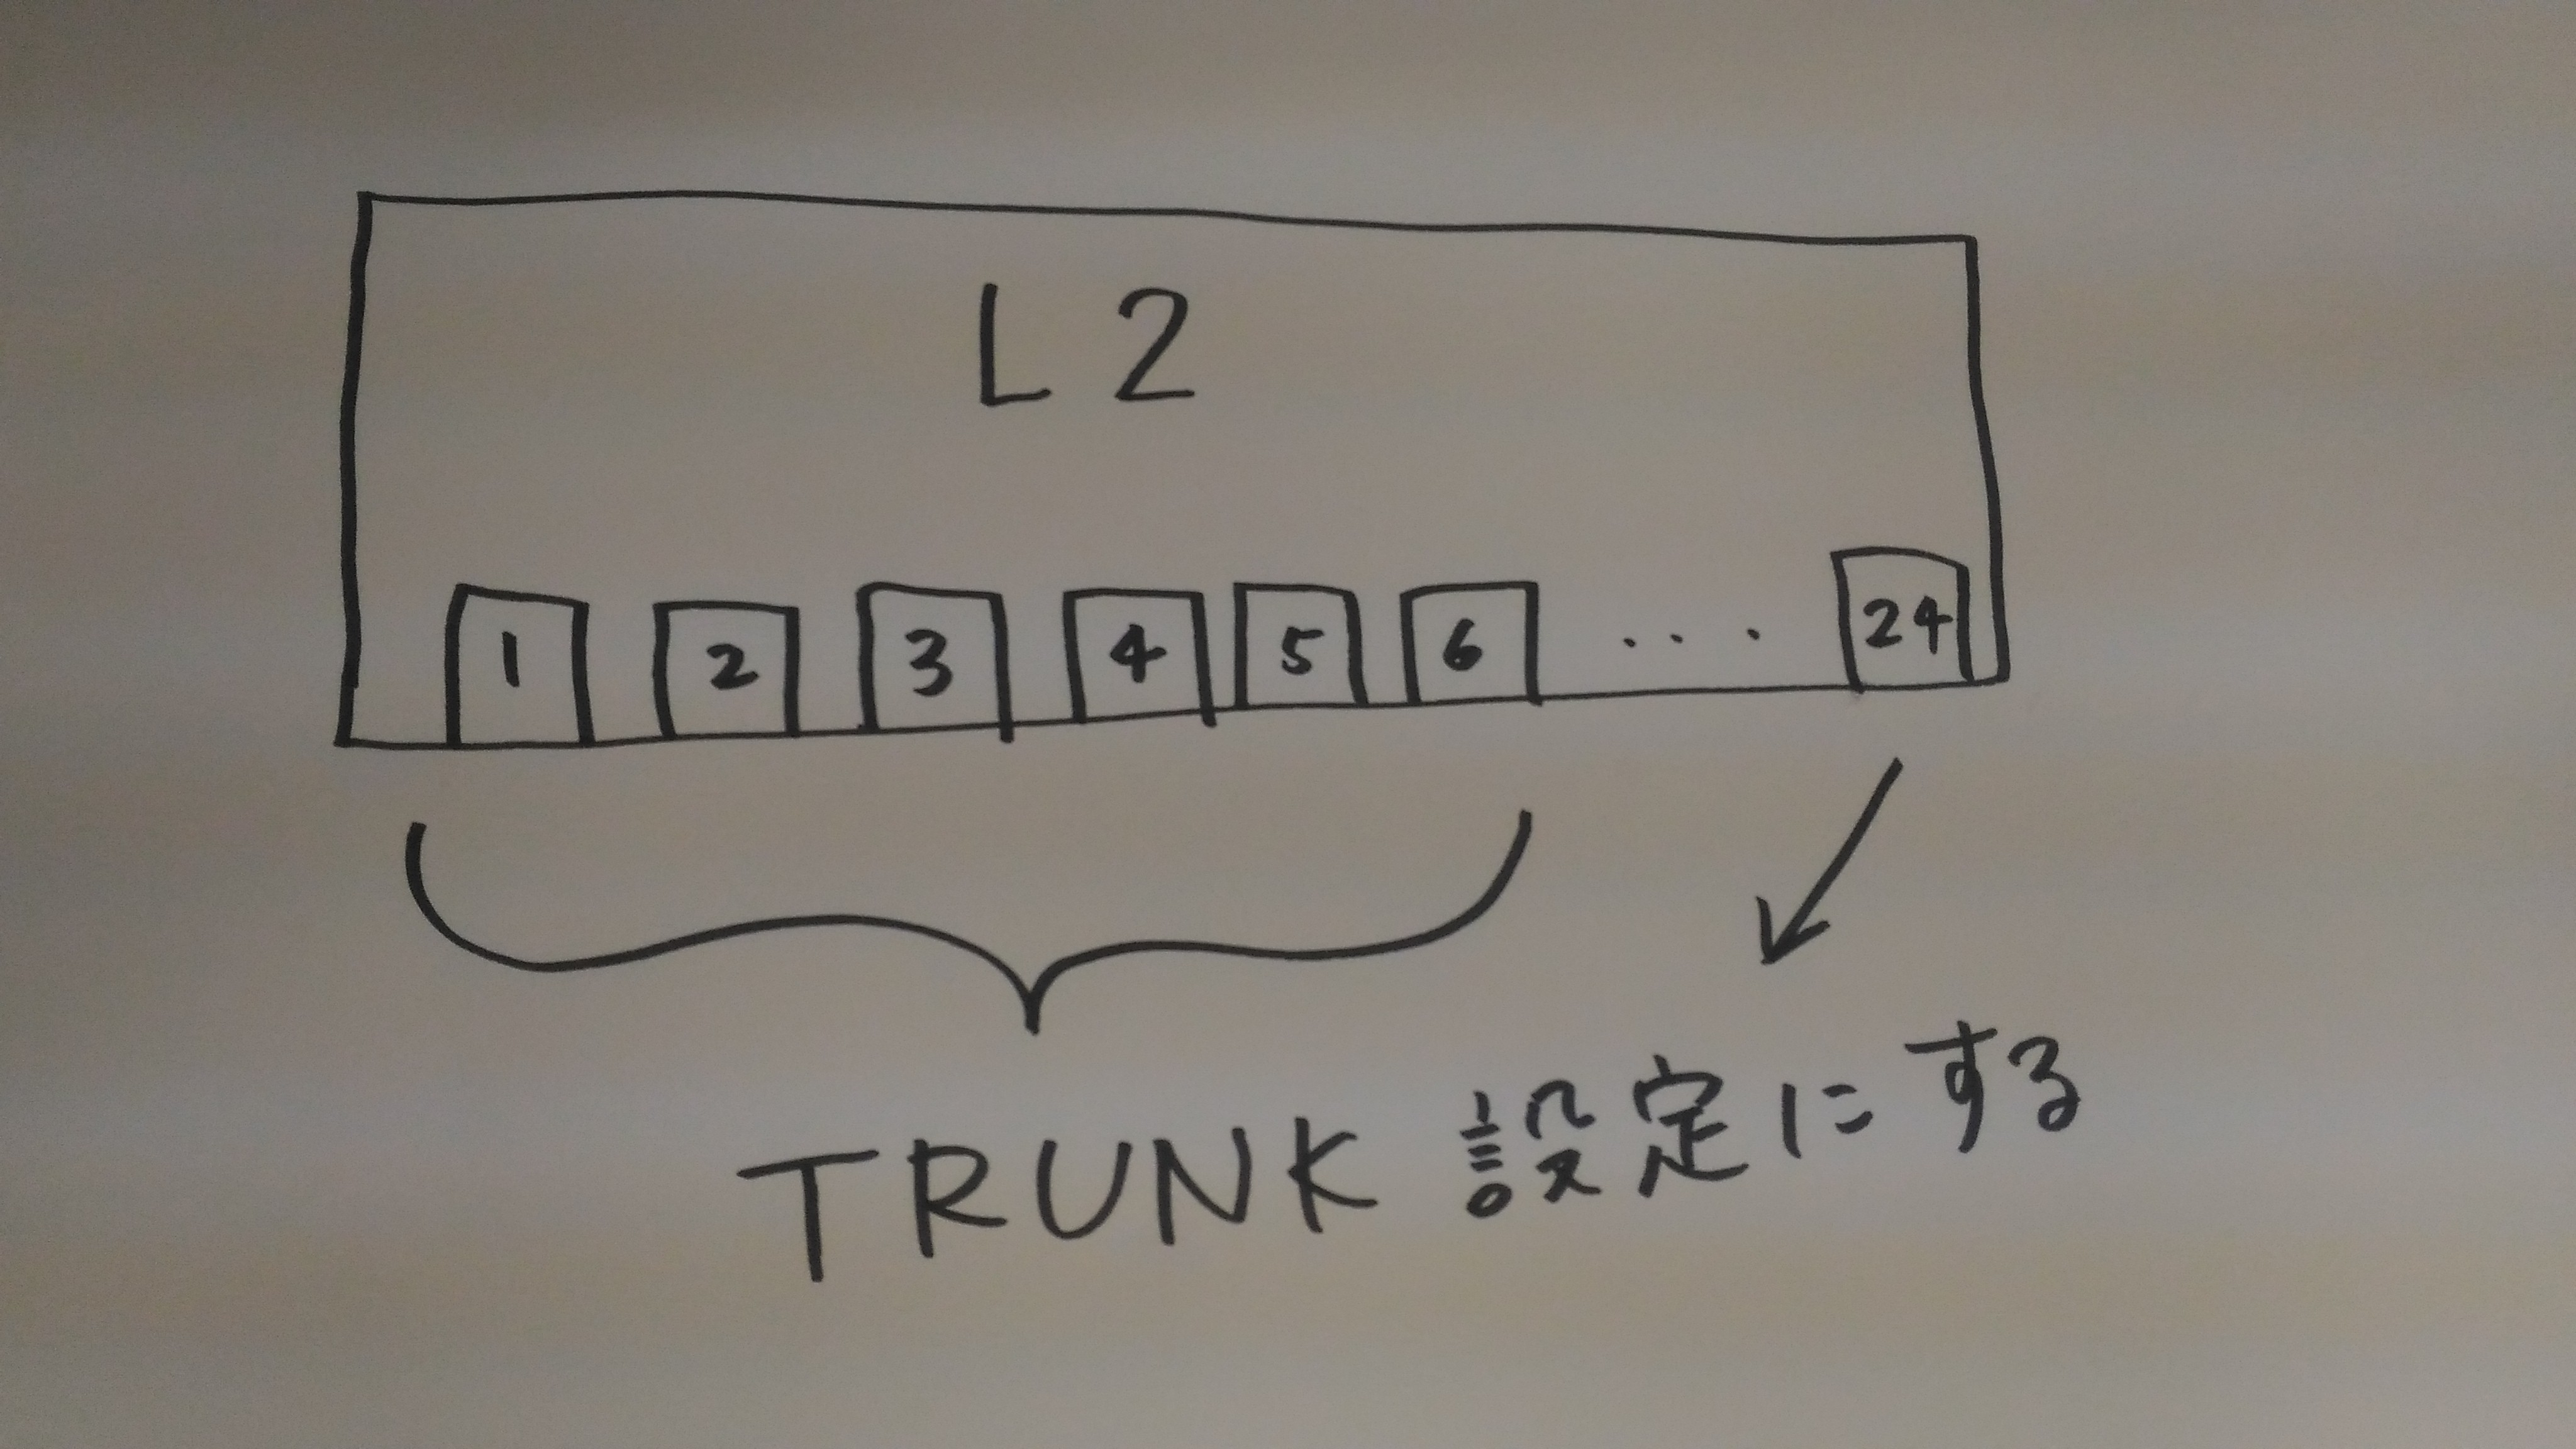 L2
1 2 3 4 5 6 ... 24
TRUNK 設定にする